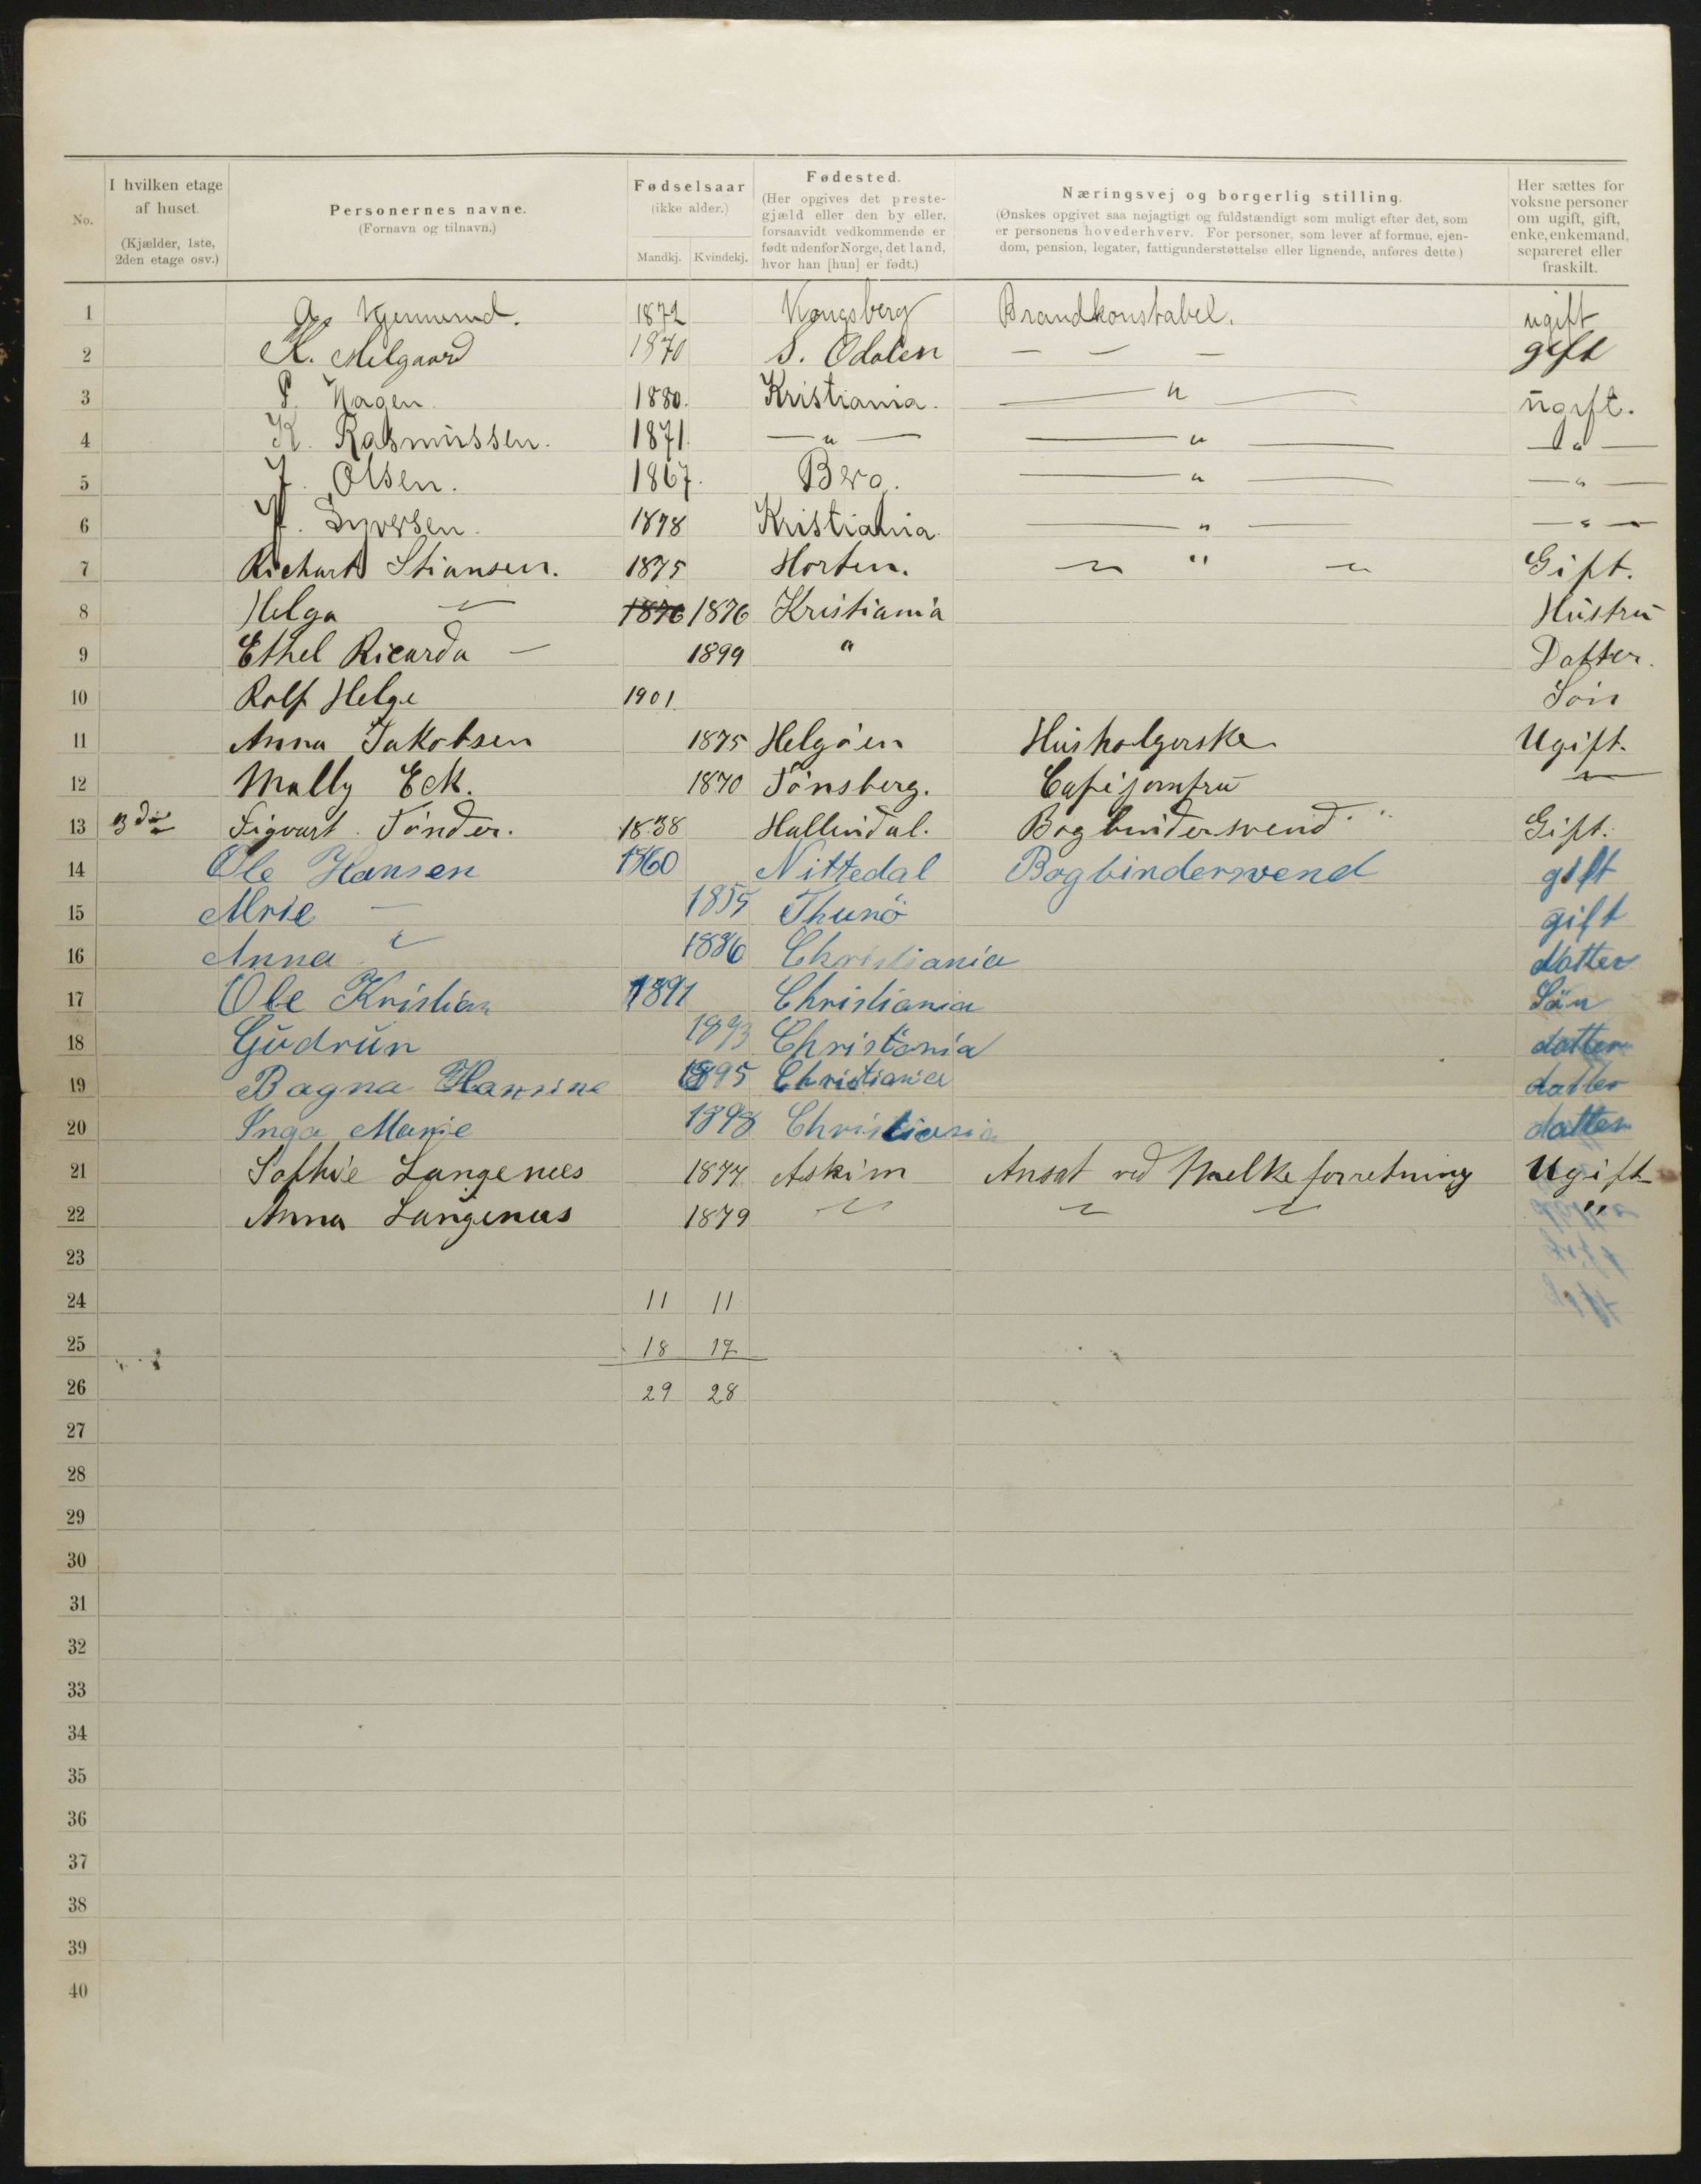 No. I hvilken etage af huset. (Kjælder, 1ste, 2den etage osv.) Personernes navne. (Fornavn og tilnavn.) Fødselsaar (ikke alder.) Mandkj. Kvindekj. Fødested. (Her opgives det prestegjæld eller den by eller, forsaavidt vedkommende er født udenfor Norge, det land, hvor han [hun] er født.) Næringsvej og borgerlig stilling. (Ønskes opgivet saa nøjagtigt og fuldstændigt som muligt efter det, som er personens hovederhverv. For personer, som lever af formue, ejendom, pension, legater, fattigunderstøttelse eller lignende, anføres dette) Her sættes for voksne personer om ugift, gift, enke, enkemand, separeret eller fraskilt.
1 1872 Kongsberg Brandkonstabel. ugift
2 K. Melgaard 1870 S. Odalen — — — gift
3 P. Hagen 1880. Kristiania. — " — ugift.
4 K. Rasmussen. 1871. — " — — " — — " —
5 J. Olsen. 1867. Berg. — " — — " —
6 Syversen. 1878 Kristiania. — " — — " —
7 Richard Stiansen. 1875 Horten. — " — Gift.
8 Helga — 1876 1876 Kristiania Hustru
9 Ethel Ricarda — 1899 " Datter.
10 Rolf Helge 1901 Søn
11 Anna Jakobsen 1875 Helgøen Husholgerske Ugift.
12 Mally Eck. 1870 Tønsberg. Cafejomfru —
13 3die Sigvart Tønder. 1838 Hallindal. Bogbindersvend Gift.
14 Ole Hansen 1860 Nittedal Bogbindersvend gift
15 Mrie — 1855 Thunö gift
16 Anna " 1886 Christiania datter
17 Ole Kristian 1891 Christiania Sön
18 Gudrun 1893 Christania datter
19 Bagna Hansine 1895 Christiania datter
20 Inga Marie 1898 Christiania datter
21 Sofhie Langenees 1877 Askim Ansat ved Melkeforretning Ugift
22 Anna Langenees 1879 " " " "
23
24 11 11
25 18 17
26 29 28
27
28
29
30
31
32
33
34
35
36
37
38
39
40